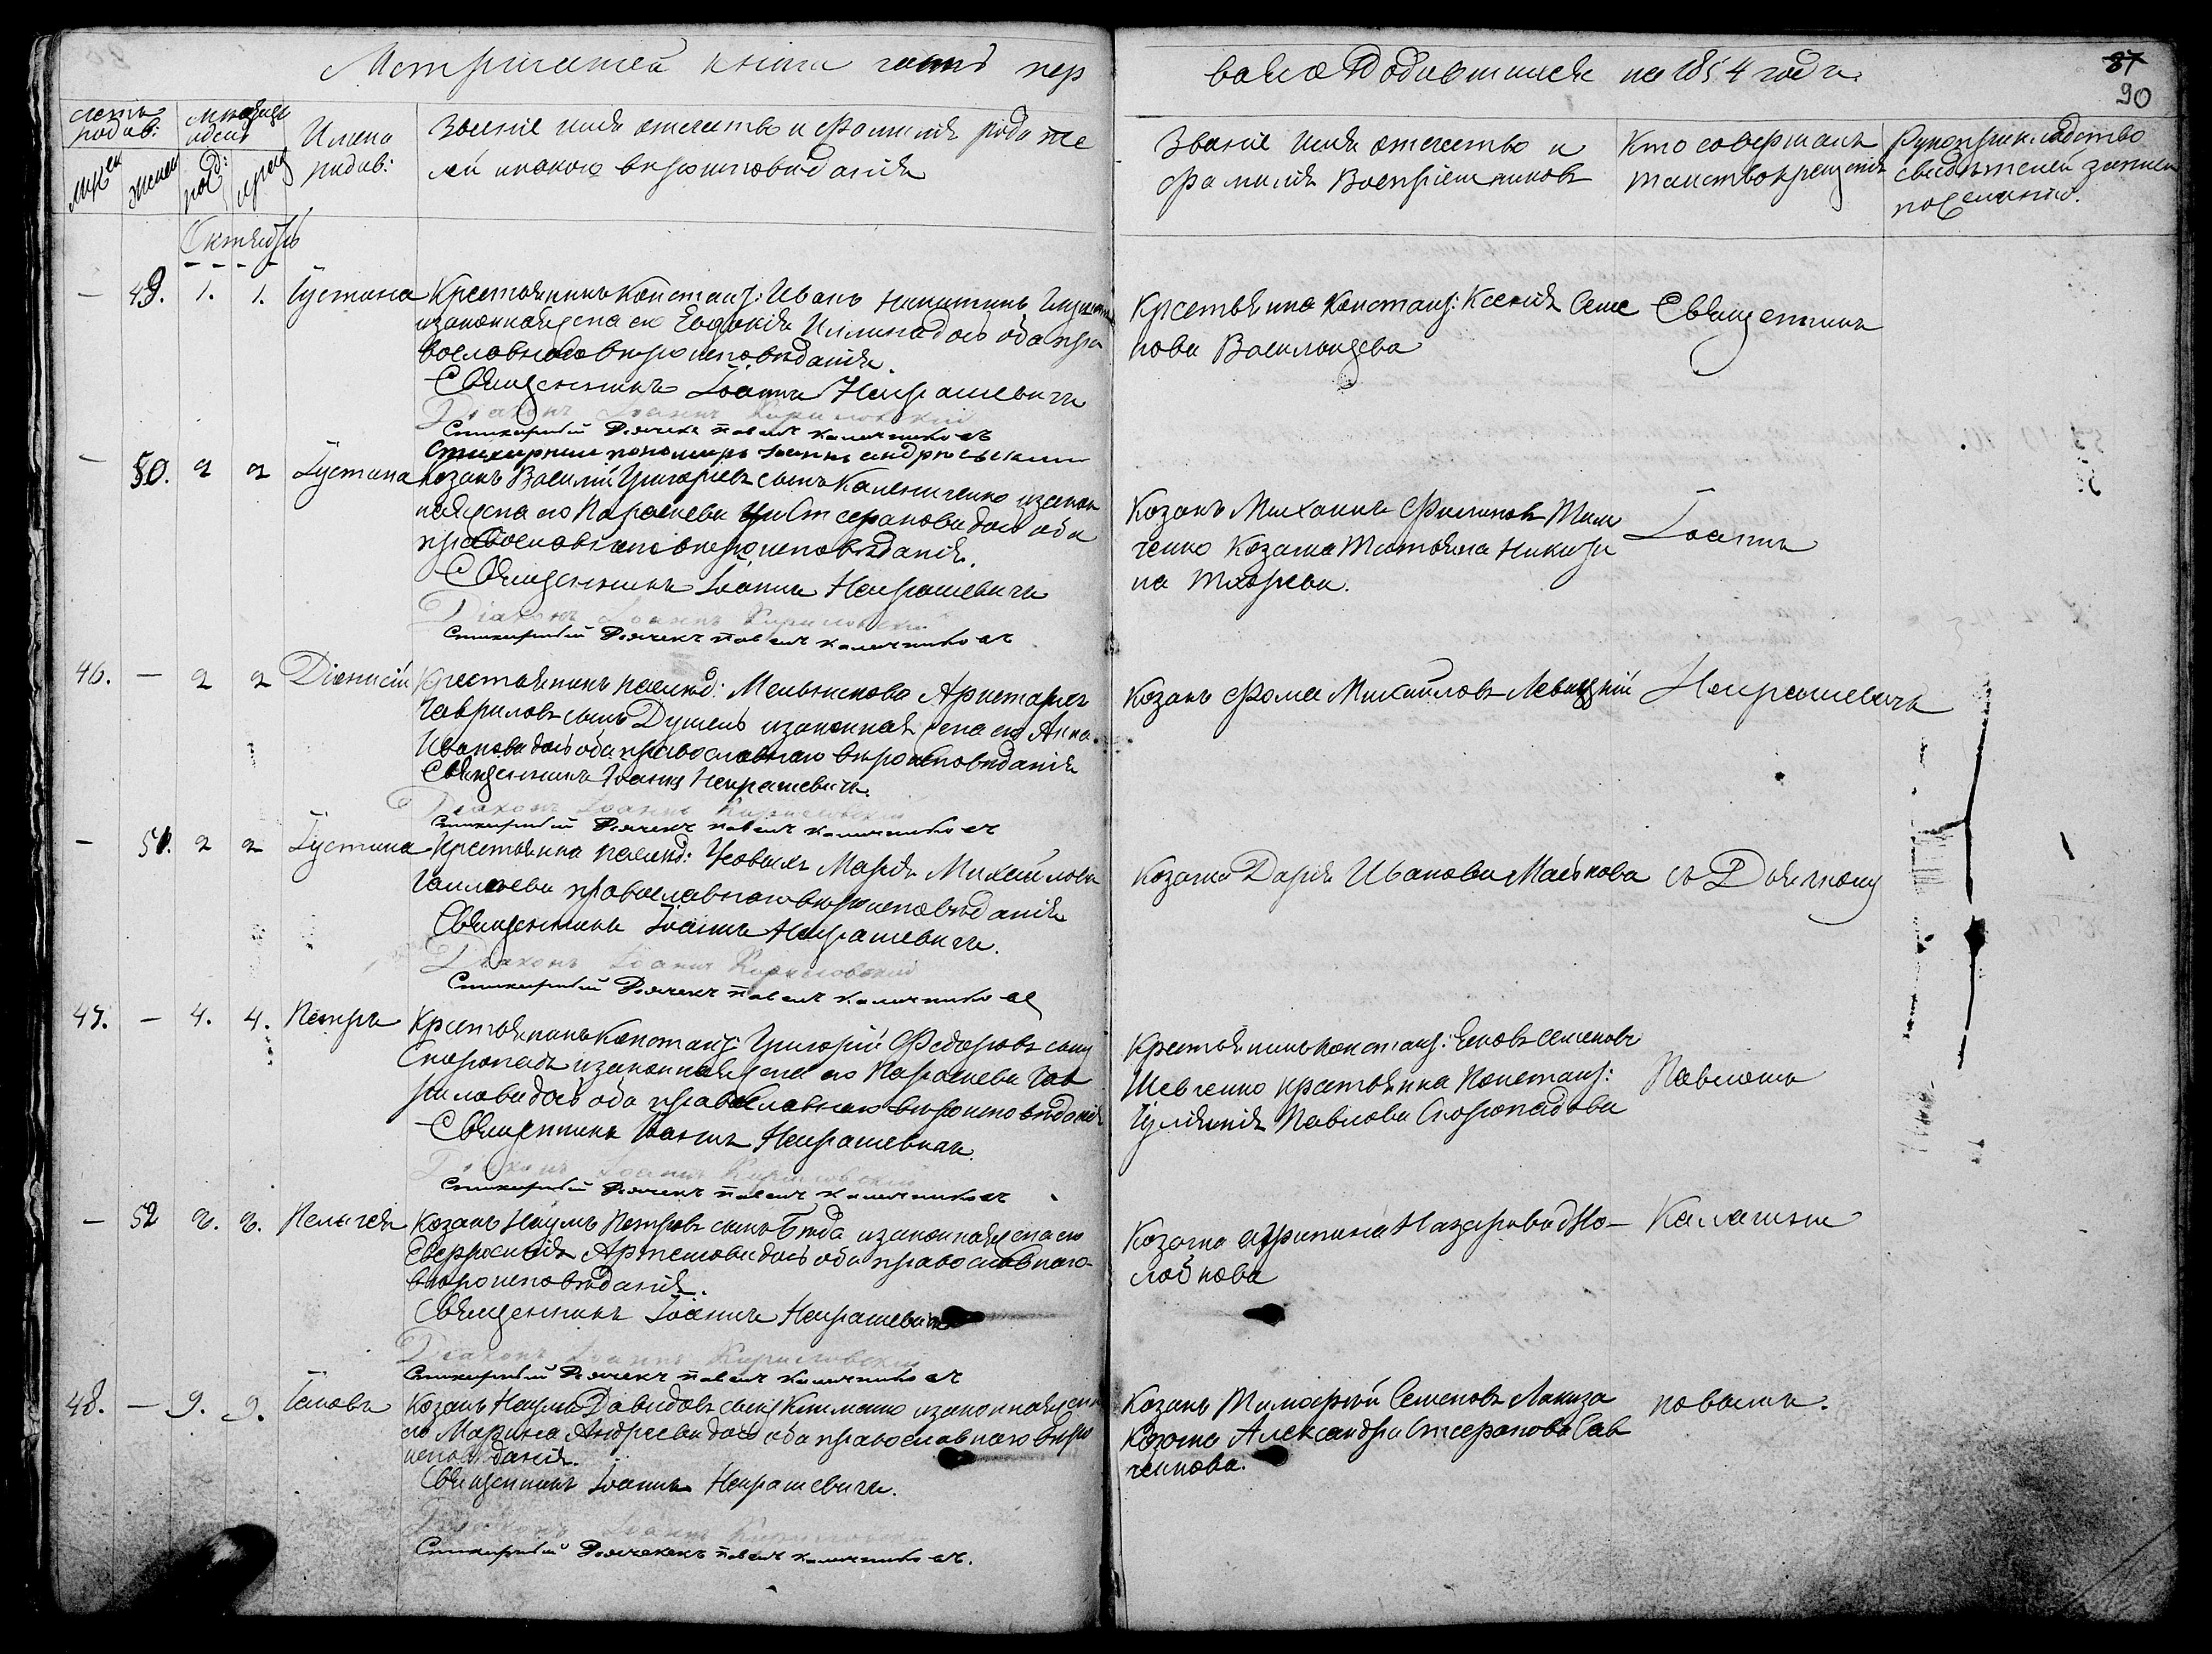 Метрической книги часть пер
вая о Родившихся на 1854 годъ
87
90
счетъ
родив:
Мѣсяцъ
и день
Имена
родив:
Званіе имя отечество и фамилія роди те
лей и какого вѣроисповѣданія
Званіе имя отечество и
фамилія Воспріемниковъ
Кто совершалъ
таинство крещенія
Рукоприкладство
свидѣтелей записи
по желанію.
муж
женск
рожд:
крещ
Октябрь
— 49. 1. 1. Іустина
Крестьянинъ Констанц: Иванъ Никитинъ
и законная жена его Евдокія оба пра
вославнаго вѣроисповѣданія.
Священникъ Іоаннъ Неврашевичъ
Діаконъ Іоаннъ Кириловскій
Стихарный Дьячекъ Павелъ Калачниковъ
Стихарный пономарь Іоаннъ Андріевскій
Крестьянка Констанц: Ксенія Семе
нова
Священникъ
— 50. 2 2 Іустина
Козакъ Василій Григоріевъ сынъ и закон
ная жена его Параскева Стефанова дочь оба
православнаго вѣроисповѣданія.
Священникъ Іоаннъ Неврашевичъ
Діаконъ Іоаннъ Кириловскій
Стихарный Дьячекъ Павелъ Калачниковъ
Козакъ Михаилъ Филиповъ Тим
ченко Козачка Татьяна Никифо
на
Іоаннъ
46. — 2 2 Діонисій
Крестьянинъ наслед: Мельникова Аристархъ
Гавриловъ сынъ Душень и законная жена его Анна
Иванова дочь оба православнаго вѣроисповѣданія
Священникъ Іоаннъ Неврашевичъ.
Діаконъ Іоаннъ Кириловскій
Стихарный Дьячекъ Павелъ Калачниковъ
Козакъ Фома Михайловъ Левицкій
Неврашевичъ
— 51. 2 2 Іустина
Крестьянка наслед: Марія Михайлова
православнаго вѣроисповѣданія
Священникъ Іоаннъ Неврашевичъ.
Діаконъ Іоаннъ Кириловскій
Стихарный Дьячекъ Павелъ Калачниковъ
Козачка Дарія Иванова Маськова
съ Дьячкомъ
47. — 4. 4. Петръ
Крестьянинъ Констанц: Григорій Федоровъ сынъ
Скоропадъ и законная жена его Параскева Гав
рилова дочь оба православнаго вѣроисповѣданія
Священникъ Іоаннъ Неврашевичъ.
Діаконъ Іоаннъ Кириловскій
Стихарный Дьячекъ Павелъ Калачниковъ
Крестьянинъ Констанц: Яковъ Семеновъ
Шевченко крестьянка Констанц:
Іуліянія Павлова Скоропадова
Павломъ
— 52 8. 8. Пелагея
Козакъ Наумъ Петровъ сынъ Бѣда и законная жена его
Евфросинія Артемова дочь оба православнаго
вѣроисповѣданія.
Священникъ Іоаннъ Неврашевичъ
Діаконъ Іоаннъ Кириловскій
Стихарный Дьячекъ Павелъ Калачниковъ
Козачка Агрипина Назарова
Калачни
48. — 9. 9. Іаковъ
Козакъ Наумъ Давидовъ сынъ Клименко и законная жена
его Марина Андреева дочь оба православнаго вѣро
исповѣданія.
Священникъ Іоаннъ Неврашевичъ.
Діаконъ Іоаннъ Кириловскій
Стихарный Дьячекъ Павелъ Калачниковъ.
Козакъ Тимофѣй Семеновъ Лакиза
Козачка Александра Стефанова Сав
ченкова.
ковымъ.